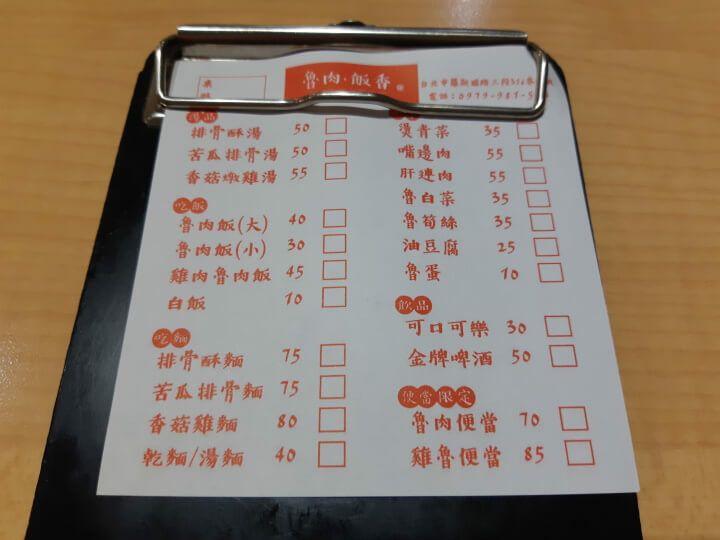 魯肉·飯香
電話:0979-987-5
湯品
排骨酥湯 50
苦瓜排骨湯 50
香菇燉雞湯 55
吃飯
魯肉飯(大) 40
魯肉飯(小) 30
雞肉魯肉飯 45
白飯 10
吃麵
排骨酥麵 75
苦瓜排骨麵 75
香菇雞麵 80
乾麵/湯麵 40
燙青菜 35
嘴邊肉 55
肝連肉 55
魯白菜 35
魯筍絲 35
油豆腐 25
魯蛋 10
飲品
可口可樂 30
金牌啤酒 50
便當限定
魯肉便當 70
雞魯便當 85